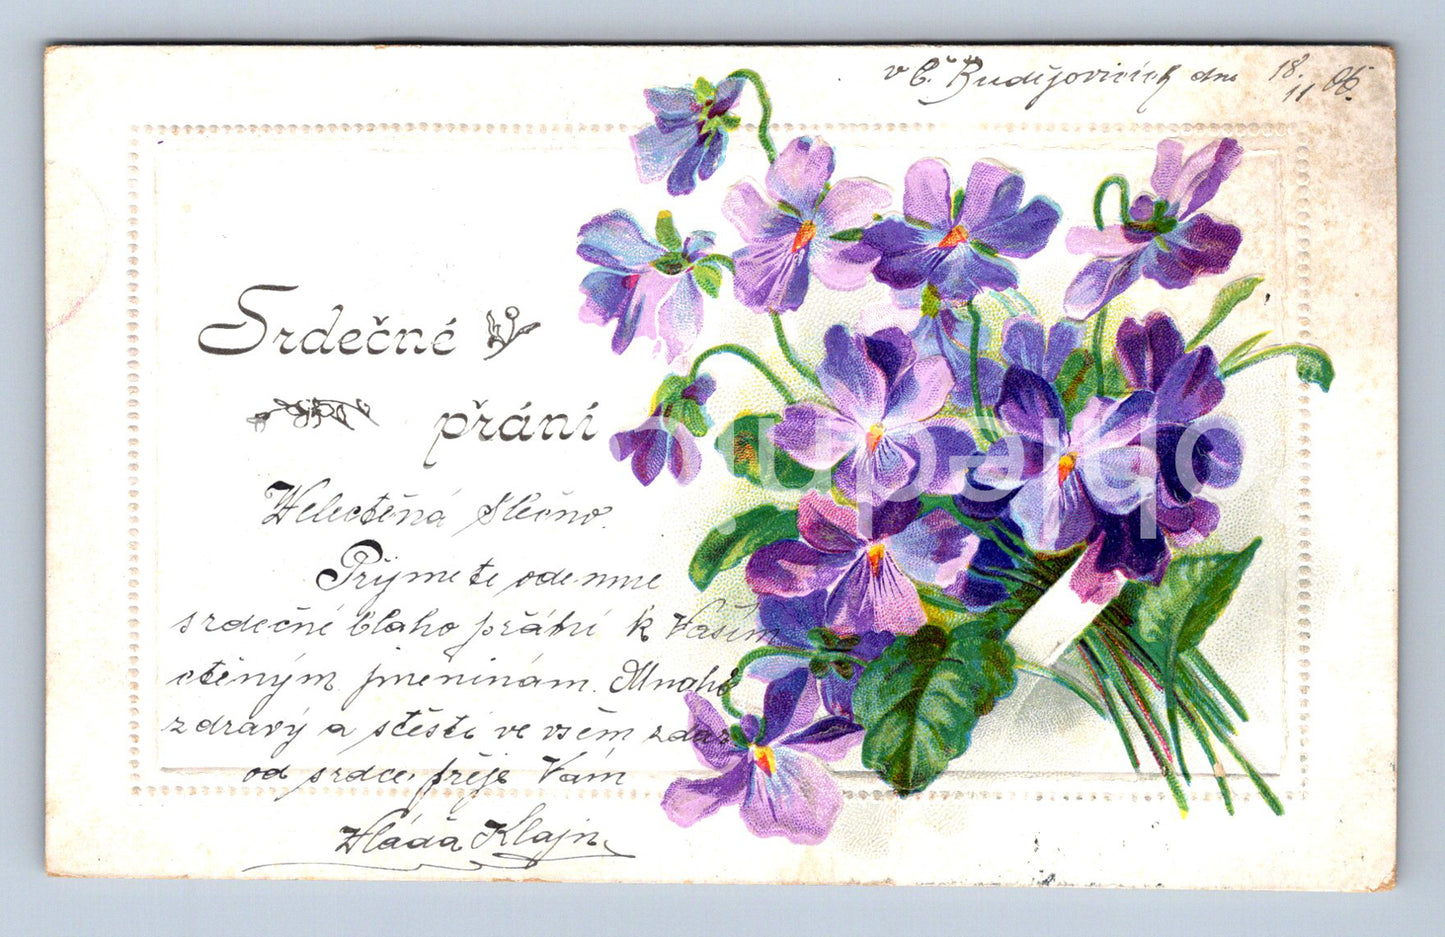 v Č. Budějovicích dne 18. 11 06.
Srdečné
přání
Velectěná slečno.
Přijmete ode mne
srdečné blaho přání k Vašim
ctěným jmeninám. Mnoho
zdravý a stěstí ve všem zdar
od srdce, přeje Vám
Vláďa Klajn